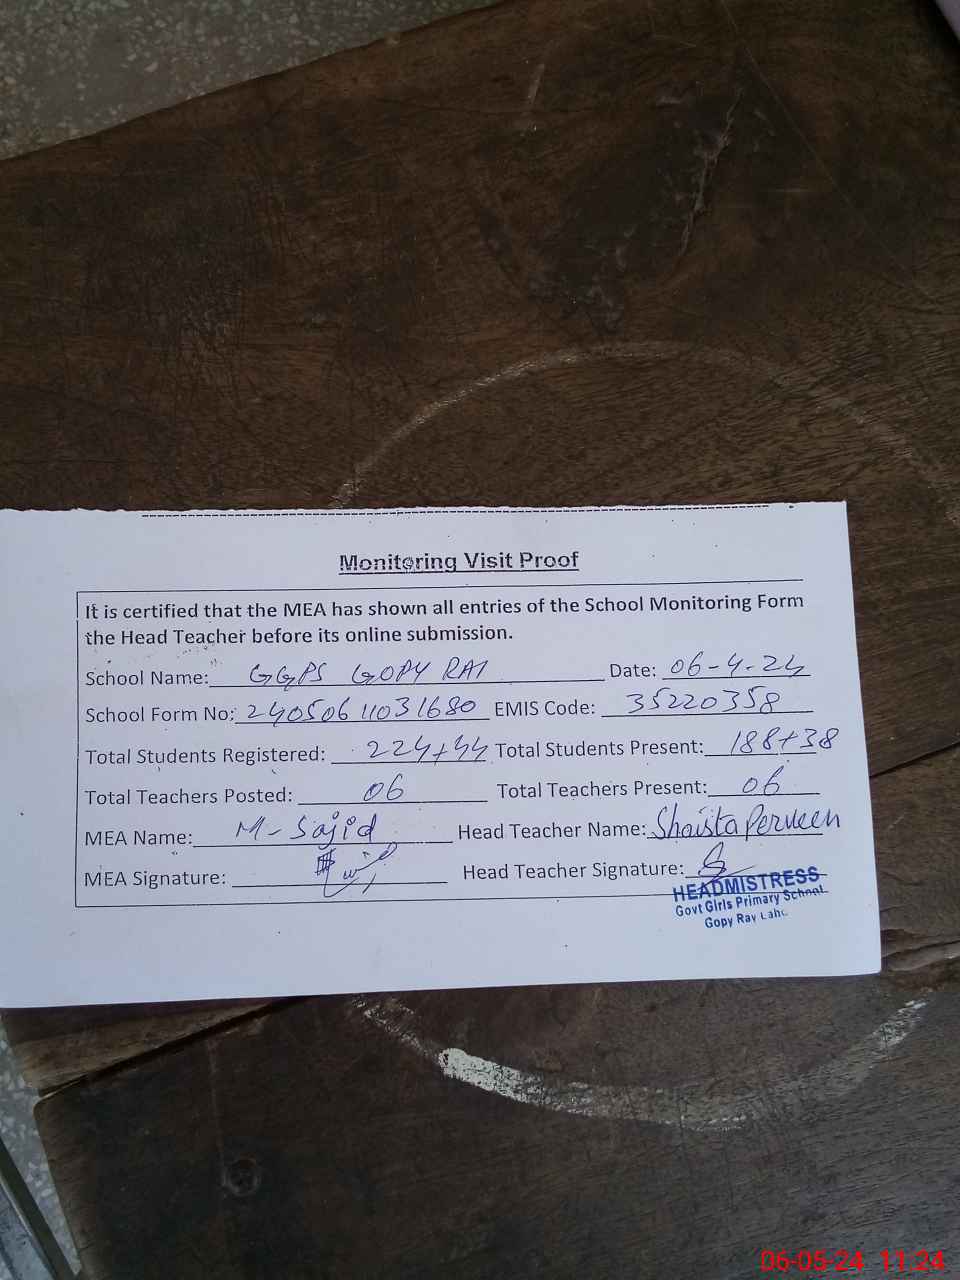 Monitoring Visit Proof
It is certified that the MEA has shown all entries of the School Monitoring Form
the Head Teacher before its online submission.
School Name: GGPS GOPY RAI Date: 06-4-24
School Form No: 240506 11031680 EMIS Code: 35220358
Total Students Registered: 224+44 Total Students Present: 188+38
Total Teachers Posted: 06 Total Teachers Present: 06
MEA Name: M-Sajid Head Teacher Name: Shaista Perveen
MEA Signature: Head Teacher Signature:
HEADMISTRESS
Govt Girls Primary School
Gopy Ray
06-05-24 11:24